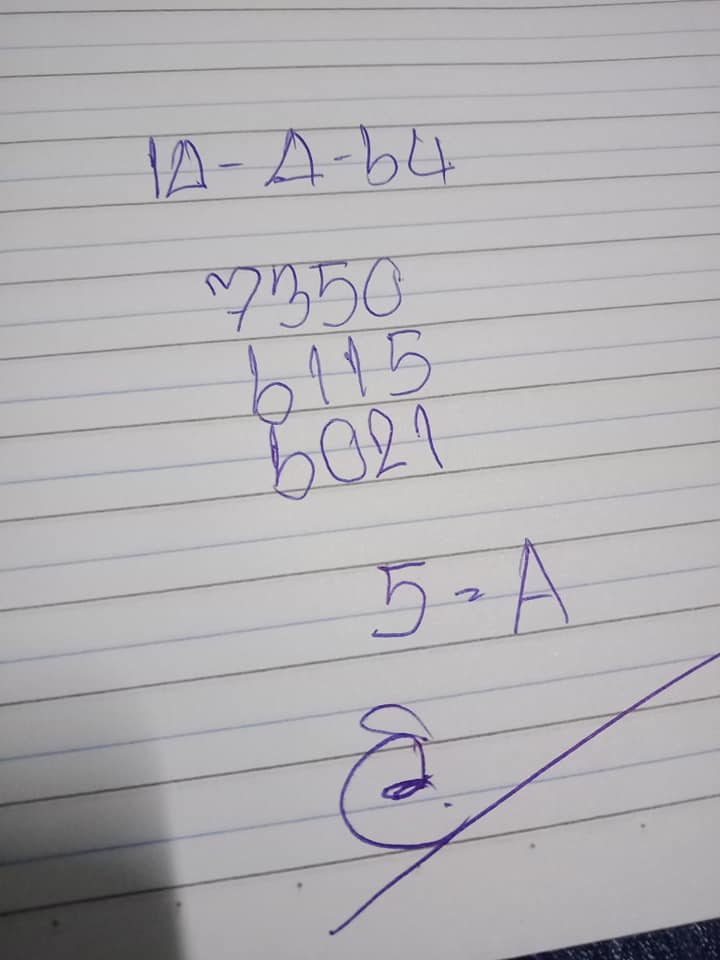 1A-A-64
7350
6115
6021
5=A